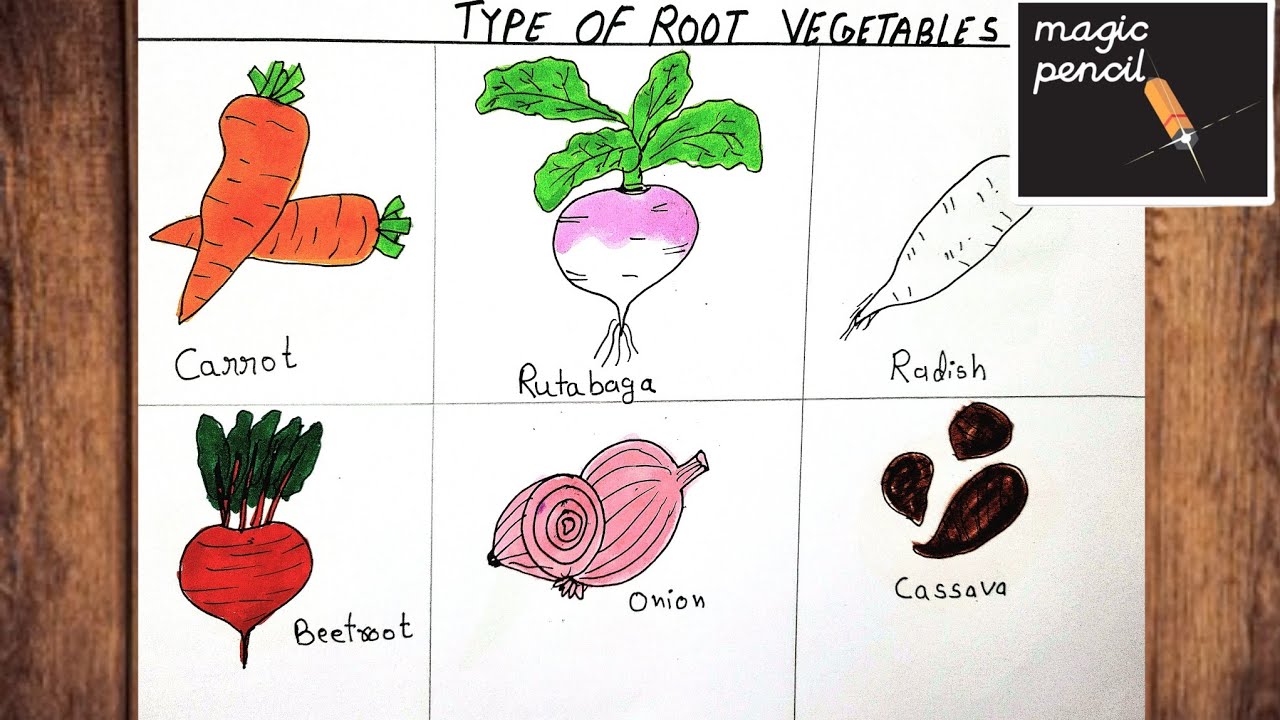 TYPE OF ROOT VEGETABLES
magic
pencil
Carrot
Rutabaga
Radish
Beetroot
Onion
Cassava